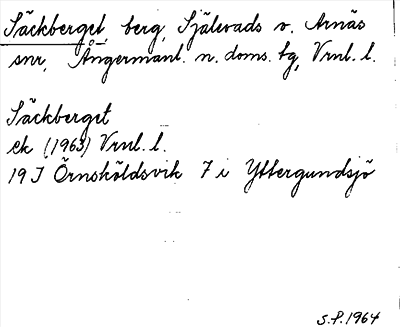 Säckberget, berg, Själevads o. Arnäs
snr, Ångermanl. n. doms. tg, Vrnl. l.
Säckberget
ek (1963) Vrnl. l.
19 J Örnsköldsvik 7 i Yttergundsjö
S.P. 1964